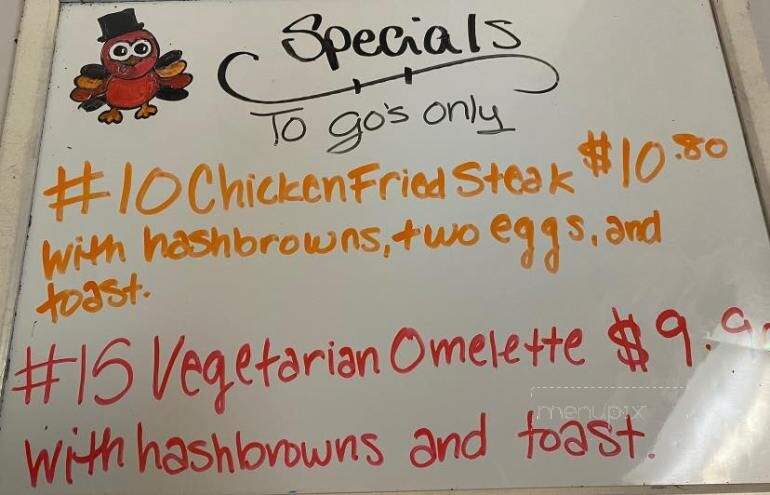 Specials
To go's only
#10 Chicken Fried Steak $10.80
with hashbrowns, two eggs, and
toast.
#15 Vegetarian Omelette $9.9
with hashbrowns and toast.
menupix